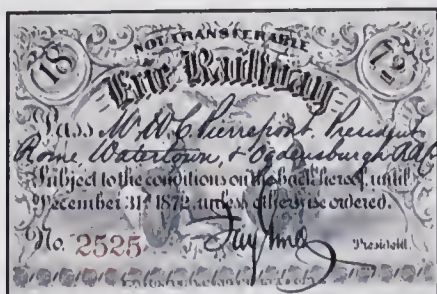 NOT TRANSFERABLE
18 72
Erie Railway
Pass W. C. Pierrepont, President
Rome, Watertown, & Ogdensburgh RR Co
Subject to the conditions on the back hereof, until
December 31st 1872, unless otherwise ordered.
No. 2525 Jay Gould President.